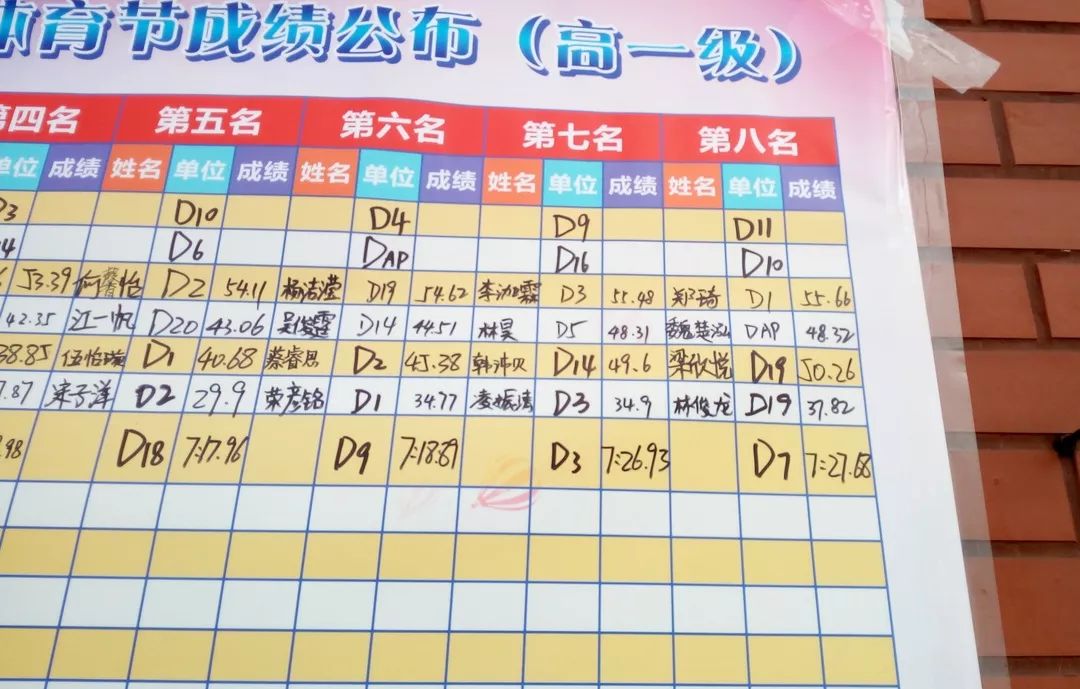 体育节成绩公布（高一级）
第四名 第五名 第六名 第七名 第八名
单位 成绩 姓名 单位 成绩 姓名 单位 成绩 姓名 单位 成绩 姓名 单位 成绩
D10 D4 D9 D11
D6 DAP D16 D10
53.39 怡 D2 54.11 杨洁滢 D19 54.62 李 霖 D3 55.48 郑子琦 D1 55.66
42.35 江一帆 D20 43.06 D14 44.51 林昊 D5 48.31 魏楚 DAP 48.32
38.85 伍怡璇 D1 40.68 蔡睿思 D2 45.38 韩沛贝 D14 49.6 梁欣悦 D19 50.26
7.87 梁子洋 D2 29.9 荣彦铭 D1 34.77 凌振 D3 34.9 林俊龙 D19 37.82
.98 D18 7:17.96 D9 7:18.89 D3 7:26.93 D7 7:27.68